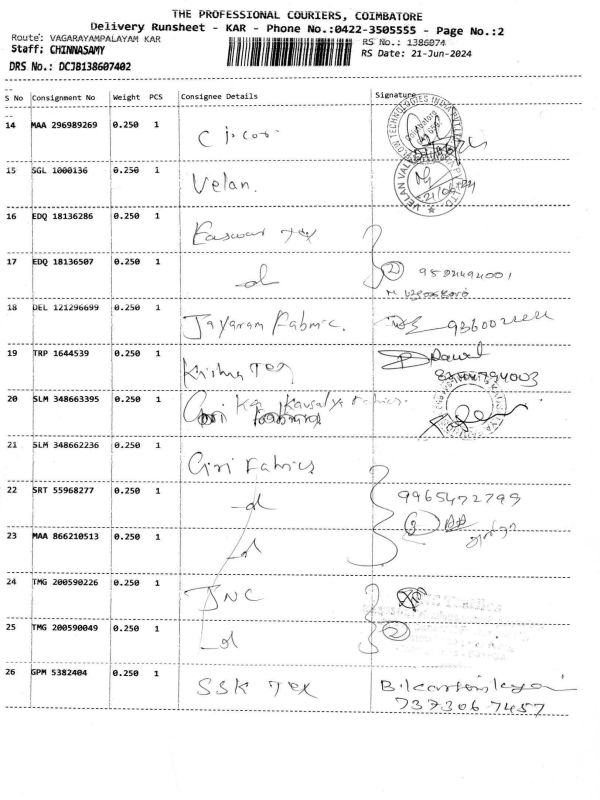 THE PROFESSIONAL COURIERS, COIMBATORE
Delivery Runsheet - KAR - Phone No.:0422-3505555 - Page No.:2
Route: VAGARAYAMPALAYAM KAR RS No.: 1386074
Staff: CHINNASAMY RS Date: 21-Jun-2024
DRS No.: DCJB138607402
S No Consignment No Weight PCS Consignee Details Signature
14 MAA 296989269 0.250 1
15 SGL 1000136 0.250 1 Velan.
16 EDQ 18136286 0.250 1 Easwar Tex
17 EDQ 18136507 0.250 1 d 2
18 DEL 121296699 0.250 1 Jayaram Fabric.
19 TRP 1644539 0.250 1 Krishna Tex
20 SLM 348663395 0.250 1 Kausalya Fabrics.
21 SLM 348662236 0.250 1 Giri Fabrics
22 SRT 55968277 0.250 1 d 9965472799
23 MAA 866210513 0.250 1 d 3
24 TMG 200590226 0.250 1 JNC
25 TMG 200590049 0.250 1 d 2
26 GPM 5382404 0.250 1 SSK Tex
737306 7457